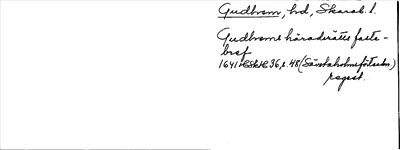 Gudhem, hd, Skarab. l.
Gudhems häradsrätts faste-
bref
1641 36, s. 48 (Säfstaholmsförteckn.)
regest.